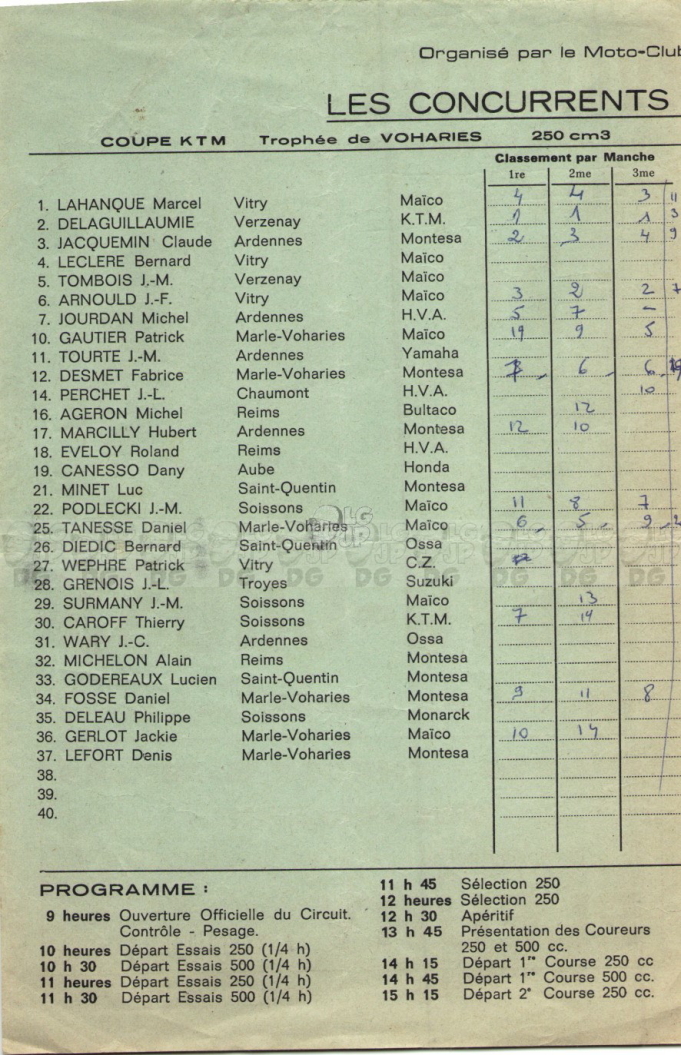 Organisé par le Moto-Club
LES CONCURRENTS
COUPE KTM Trophée de VOHARIES 250 cm3
Classement par Manche
1re 2me 3me
1. LAHANQUE Marcel Vitry Maïco 4 4 3 11
2. DELAGUILLAUMIE Verzenay K.T.M. 1 1 1 3
3. JACQUEMIN Claude Ardennes Montesa 2 3 4 9
4. LECLERE Bernard Vitry Maïco
5. TOMBOIS J.-M. Verzenay Maïco
6. ARNOULD J.-F. Vitry Maïco 3 2 2 7
7. JOURDAN Michel Ardennes H.V.A. 5 7 -
10. GAUTIER Patrick Marle-Voharies Maïco 19 9 5
11. TOURTE J.-M. Ardennes Yamaha
12. DESMET Fabrice Marle-Voharies Montesa 6 6
14. PERCHET J.-L. Chaumont H.V.A. 10
16. AGERON Michel Reims Bultaco 12
17. MARCILLY Hubert Ardennes Montesa 12 10
18. EVELOY Roland Reims H.V.A.
19. CANESSO Dany Aube Honda
21. MINET Luc Saint-Quentin Montesa
22. PODLECKI J.-M. Soissons Maïco 11 8 7
25. TANESSE Daniel Marle-Voharies Maïco 6 5 9
26. DIEDIC Bernard Saint-Quentin Ossa
27. WEPHRE Patrick Vitry C.Z.
28. GRENOIS J.-L. Troyes Suzuki
29. SURMANY J.-M. Soissons Maïco 13
30. CAROFF Thierry Soissons K.T.M. 7 14
31. WARY J.-C. Ardennes Ossa
32. MICHELON Alain Reims Montesa
33. GODEREAUX Lucien Saint-Quentin Montesa
34. FOSSE Daniel Marle-Voharies Montesa 9 11 8
35. DELEAU Philippe Soissons Monarck
36. GERLOT Jackie Marle-Voharies Maïco 10 14
37. LEFORT Denis Marle-Voharies Montesa
38.
39.
40.
PROGRAMME :
9 heures Ouverture Officielle du Circuit.
Contrôle - Pesage.
10 heures Départ Essais 250 (1/4 h)
10 h 30 Départ Essais 500 (1/4 h)
11 heures Départ Essais 250 (1/4 h)
11 h 30 Départ Essais 500 (1/4 h)
11 h 45 Sélection 250
12 heures Sélection 250
12 h 30 Apéritif
13 h 45 Présentation des Coureurs
250 et 500 cc.
14 h 15 Départ 1re Course 250 cc
14 h 45 Départ 1re Course 500 cc.
15 h 15 Départ 2e Course 250 cc.